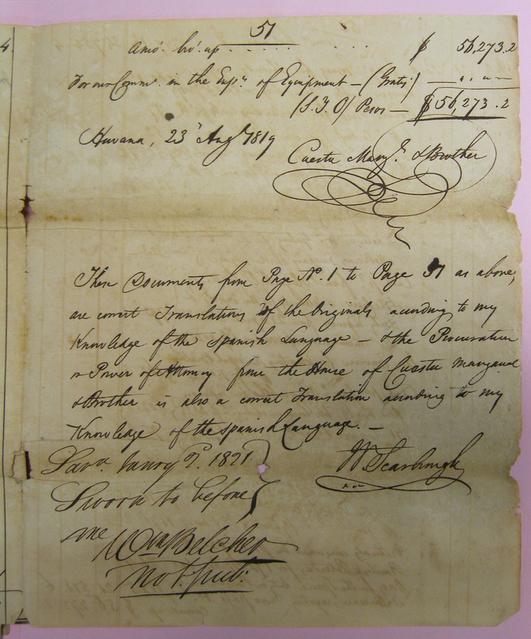 51
Amo.t bro.t up . . . . . . . $ 56,273.2
For our Comm.n in the Exp.s of Equipment — (Gratis) — " " —
(S. F. O) Pesos — $56,273.2
Havana, 23.d Aug.t 1819
Cuesta Manz.l & Brother
These Documents from Page N.o 1 to Page 51 as above,
are correct Translations of the Originals according to my
Knowledge of the Spanish Language — & the Procuration
or Power of Attorney from the House of Cuesta Manzanal
& Brother is also a correct Translation according to my
Knowledge of the Spanish Language. —
Sav.a Janry 1821
W Scarbrough
Sworn to before
me
Wm Belcher
Not. Pub.